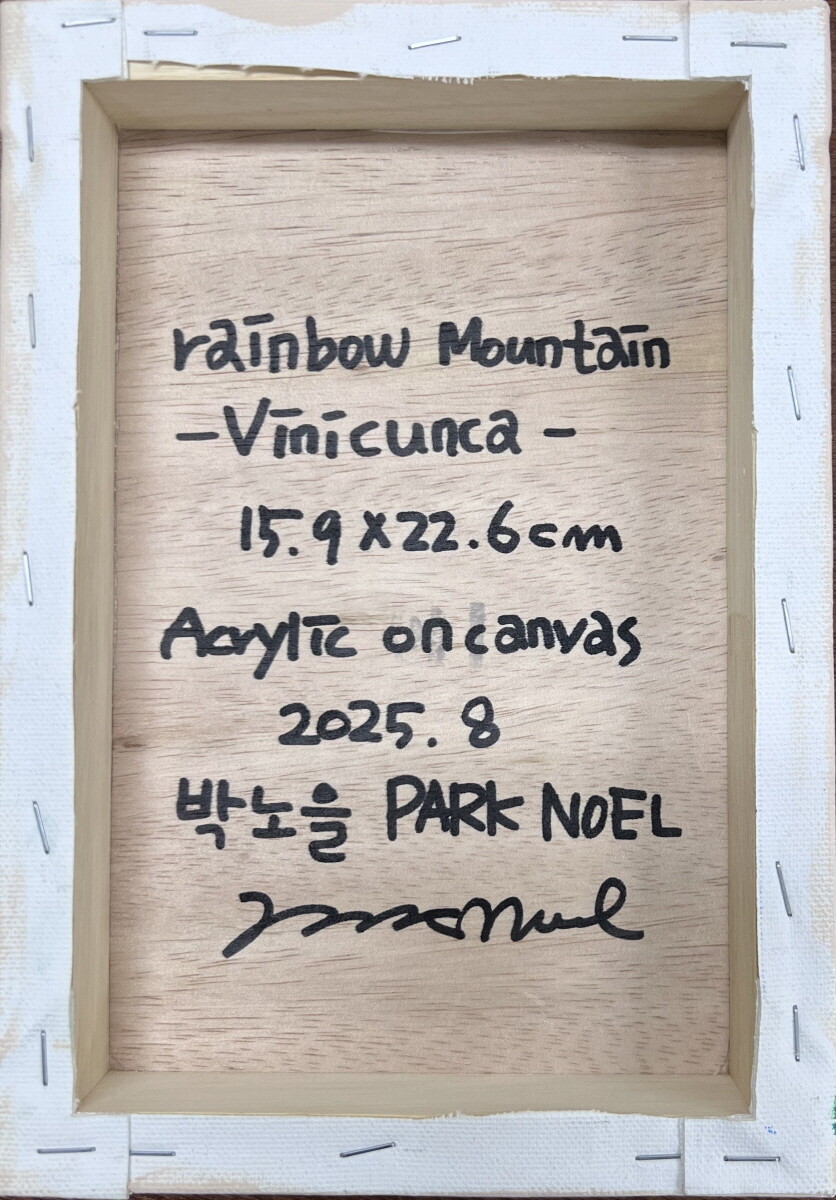 rainbow Mountain
- Vinicunca -
15.9 x 22.6 cm
Acrylic on canvas
2025. 8
박노을 PARK NOEL